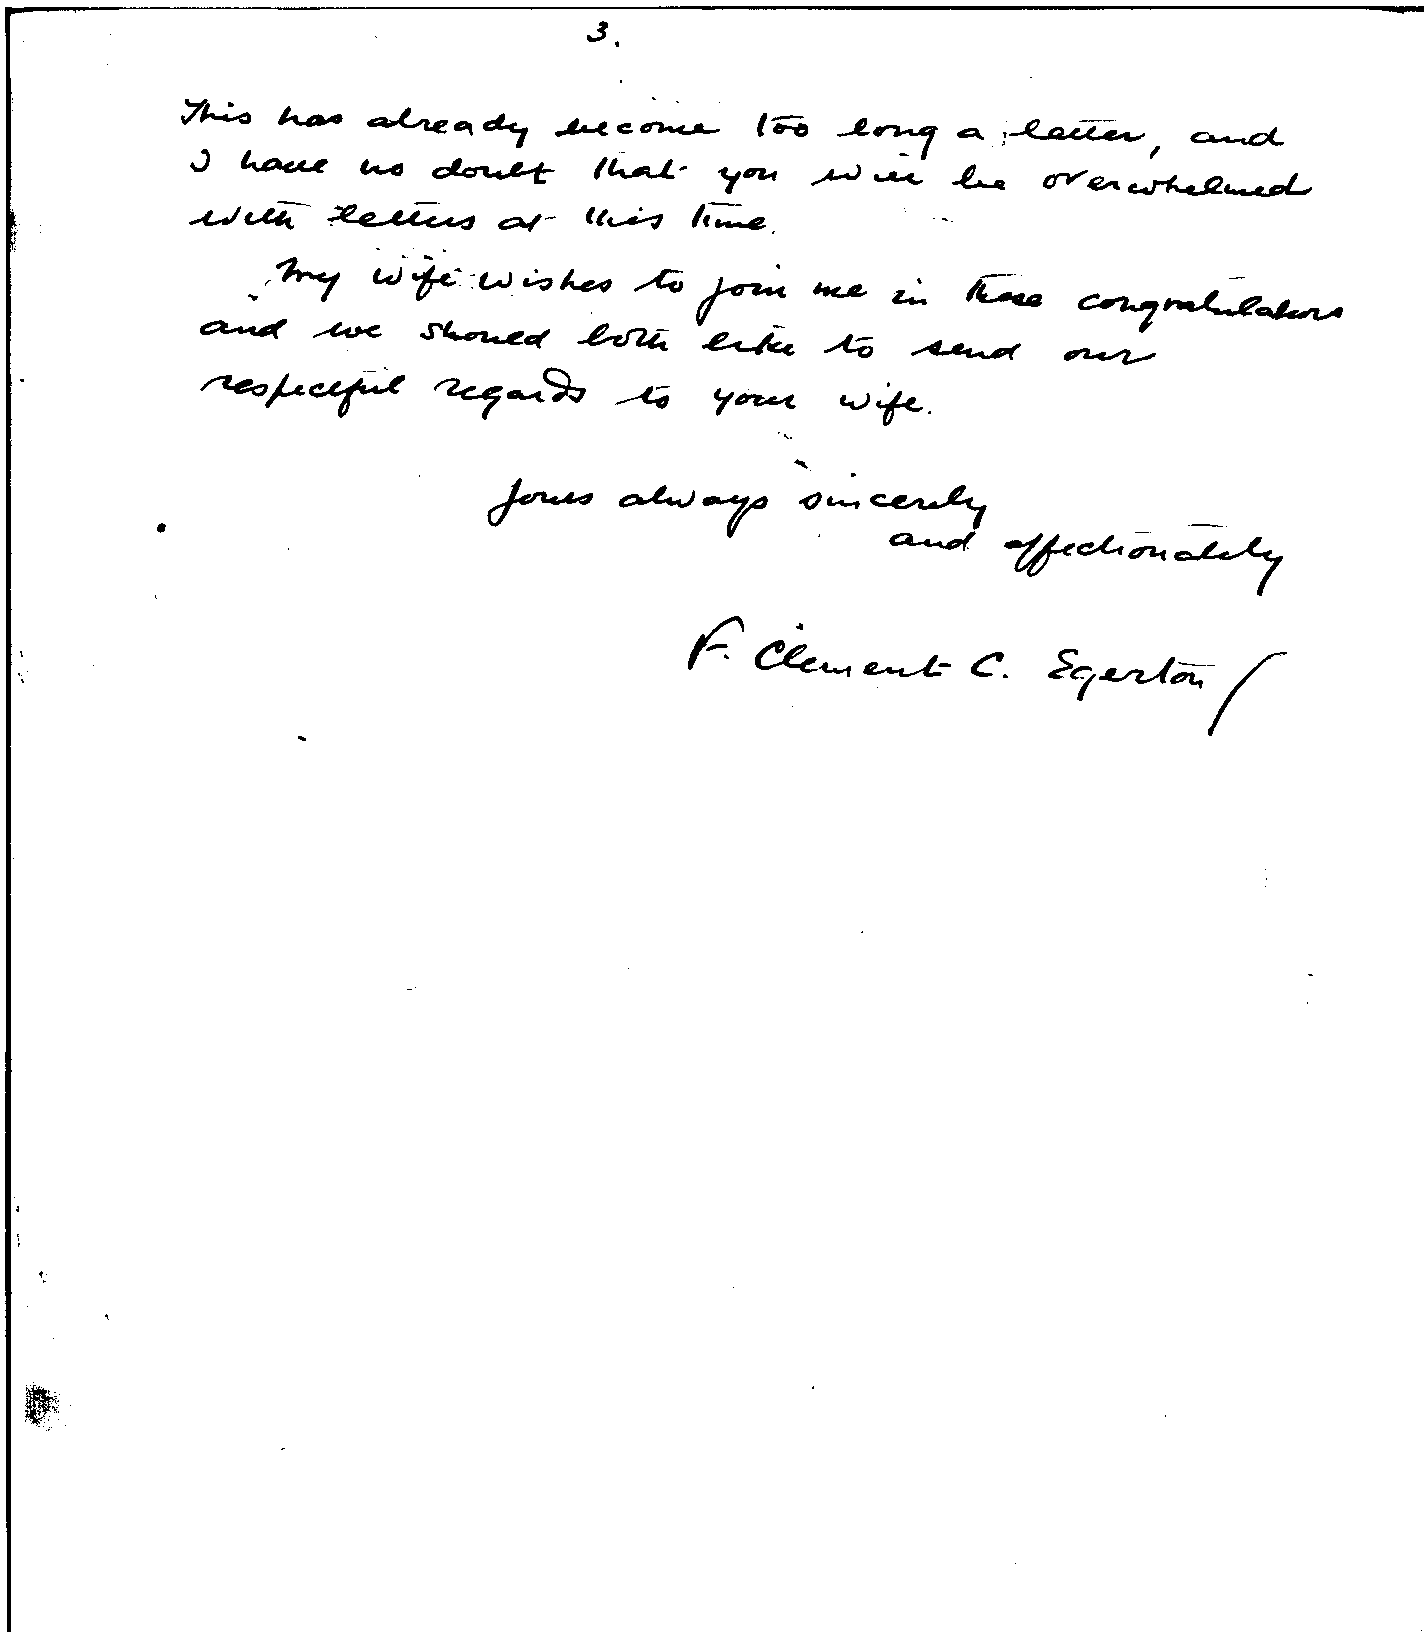 3.
This has already become too long a letter, and
I have no doubt that you will be overwhelmed
with letters at this time.
My wife wishes to join me in these congratulations
and we should both like to send our
respectful regards to your wife.
Yours always sincerely
and affectionately
F. Clement C. Egerton